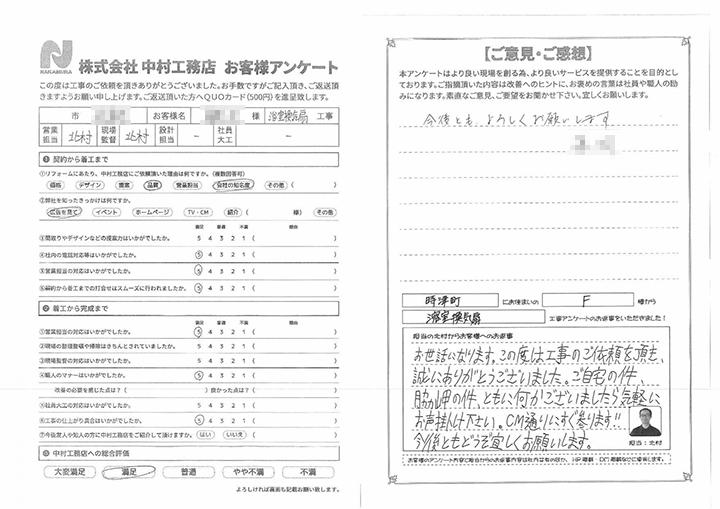 NAKAMURA
株式会社 中村工務店 お客様アンケート
この度は工事のご依頼を頂きありがとうございました。お手数ですがご記入頂き、ご返送頂
きますようお願い申し上げます。ご返送頂いた方へQUOカード(500円)を進呈致します。
市 お客様名 様 浴室換気扇 工事
営業担当 北村 現場監督 北村 設計担当 － 社員大工 －
❶ 契約から着工まで
①リフォームにあたり、中村工務店にご依頼頂いた理由は何ですか。(複数回答可)
価格 デザイン 提案 品質 営業担当 会社の知名度 その他 ( )
②弊社を知ったきっかけは何ですか。
広告を見て イベント ホームページ TV・CM 紹介 ( 様) その他
満足 普通 不満 理由
③間取りやデザインなどの提案力はいかがでしたか。 5 4 3 2 1 ( )
④社内の電話対応等はいかがでしたか。 5 4 3 2 1 ( )
⑤営業担当の対応はいかがでしたか。 5 4 3 2 1 ( )
⑥契約から着工までの打合せはスムーズに行われましたか。 5 4 3 2 1 ( )
❷ 着工から完成まで
満足 普通 不満 理由
①営業担当の対応はいかがでしたか。 5 4 3 2 1 ( )
②現場の整理整頓や掃除はきちんとされていましたか。 5 4 3 2 1 ( )
③現場監督の対応はいかがでしたか。 5 4 3 2 1 ( )
④職人のマナーはいかがでしたか。 5 4 3 2 1 ( )
改善の必要を感じた点は？( ) 良かった点は？( )
⑤社員大工の対応はいかがでしたか。 5 4 3 2 1 ( )
⑥工事の仕上がり具合はいかがでしたか。 5 4 3 2 1 ( )
⑦今後友人や知人の方に中村工務店をご紹介して頂けますか。 はい いいえ ( )
❸ 中村工務店への総合評価
大変満足 満足 普通 やや不満 不満
よろしければ裏面も記載お願い致します。
【ご意見・ご感想】
本アンケートはより良い現場を創る為、より良いサービスを提供することを目的とし
ております。ご指摘頂いた内容は改善へのヒントに、お褒めの言葉は社員や職人の励
みになります。素直なご意見、ご要望をお聞かせ下さい。宜しくお願いします。
今後とも、よろしくお願いします
時津町 にお住まいの F 様から
浴室換気扇 工事アンケートのお返事をいただきました！
担当の北村からお客様へのお返事
お世話になります。この度は工事のご依頼を頂き、
誠にありがとうございました。ご自宅の件、
脇岬の件、ともに何かございましたら気軽に
お声掛け下さい。CM通りにすぐ参ります!!
今後ともどうぞ宜しくお願いします。
担当：北村